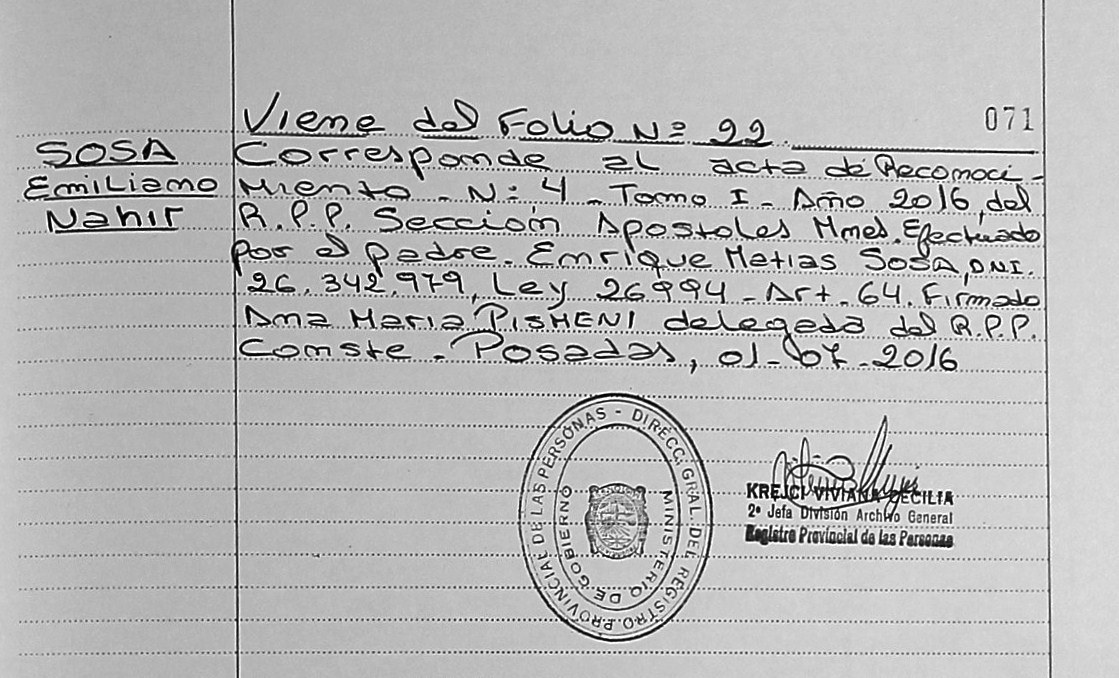 Viene del Folio Nº 22
071
SOSA
Emiliano
Nahir
Corresponde al acta de Reconoci-
miento - N: 4 - Tomo I - Año 2016, del
R.P.P. Sección Apostoles Mnes. Efectuado
por el padre. Enrique Matias SOSA, DNI.
26.342.979, Ley 26994 - Art. 64. Firmado
Ana Maria PISHENI delegada del R.P.P.
Conste - Posadas, 01-07-2016
PROVINCIAL DE LAS PERSONAS - DIRECC. GRAL. DEL REGISTRO
MINISTERIO DE GOBIERNO
KREJCI VIVIANA CECILIA
2º Jefa División Archivo General
Registro Provincial de las Personas